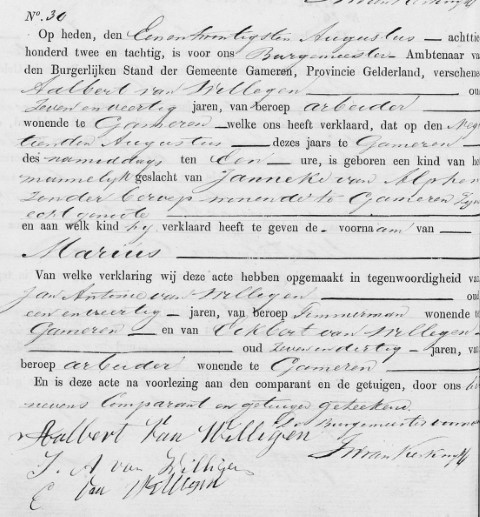 No. 30
Op heden, den Eenentwintigsten Augustus — achttie
honderd twee en tachtig, is voor ons Burgemeester Ambtenaar
van den Burgerlijken Stand der Gemeente Gameren, Provincie Gelderland, verschene
Aalbert van Willegen — ou
Zeven en veertig jaren, van beroep arbeider —
wonende te Gameren — welke ons heeft verklaard, dat op den Neg
tienden Augustus — dezes jaars te Gameren —
des namiddags ten Een — ure, is geboren een kind van he
mannelijk geslacht van Janneke van Alphen
zonder beroep wonende te Gameren zijn
echtgenoote —
en aan welk kind hij verklaard heeft te geven de - voornaam van —
Marius —
Van welke verklaring wij deze acte hebben opgemaakt in tegenwoordigheid va
Jan Antonie van Willegen — ou
een en veertig — jaren, van beroep Timmerman wonende t
Gameren — en van Eckbert van Willegen —
— oud zeven en dertig — jaren, va
beroep arbeider wonende te Gameren —
En is deze acte na voorlezing aan den comparant en de getuigen, door ons
nevens Comparant en getuigen geteekend.
De Burgemeester
Aalbert van Willigen
J. A van Willigen
E van Willigen